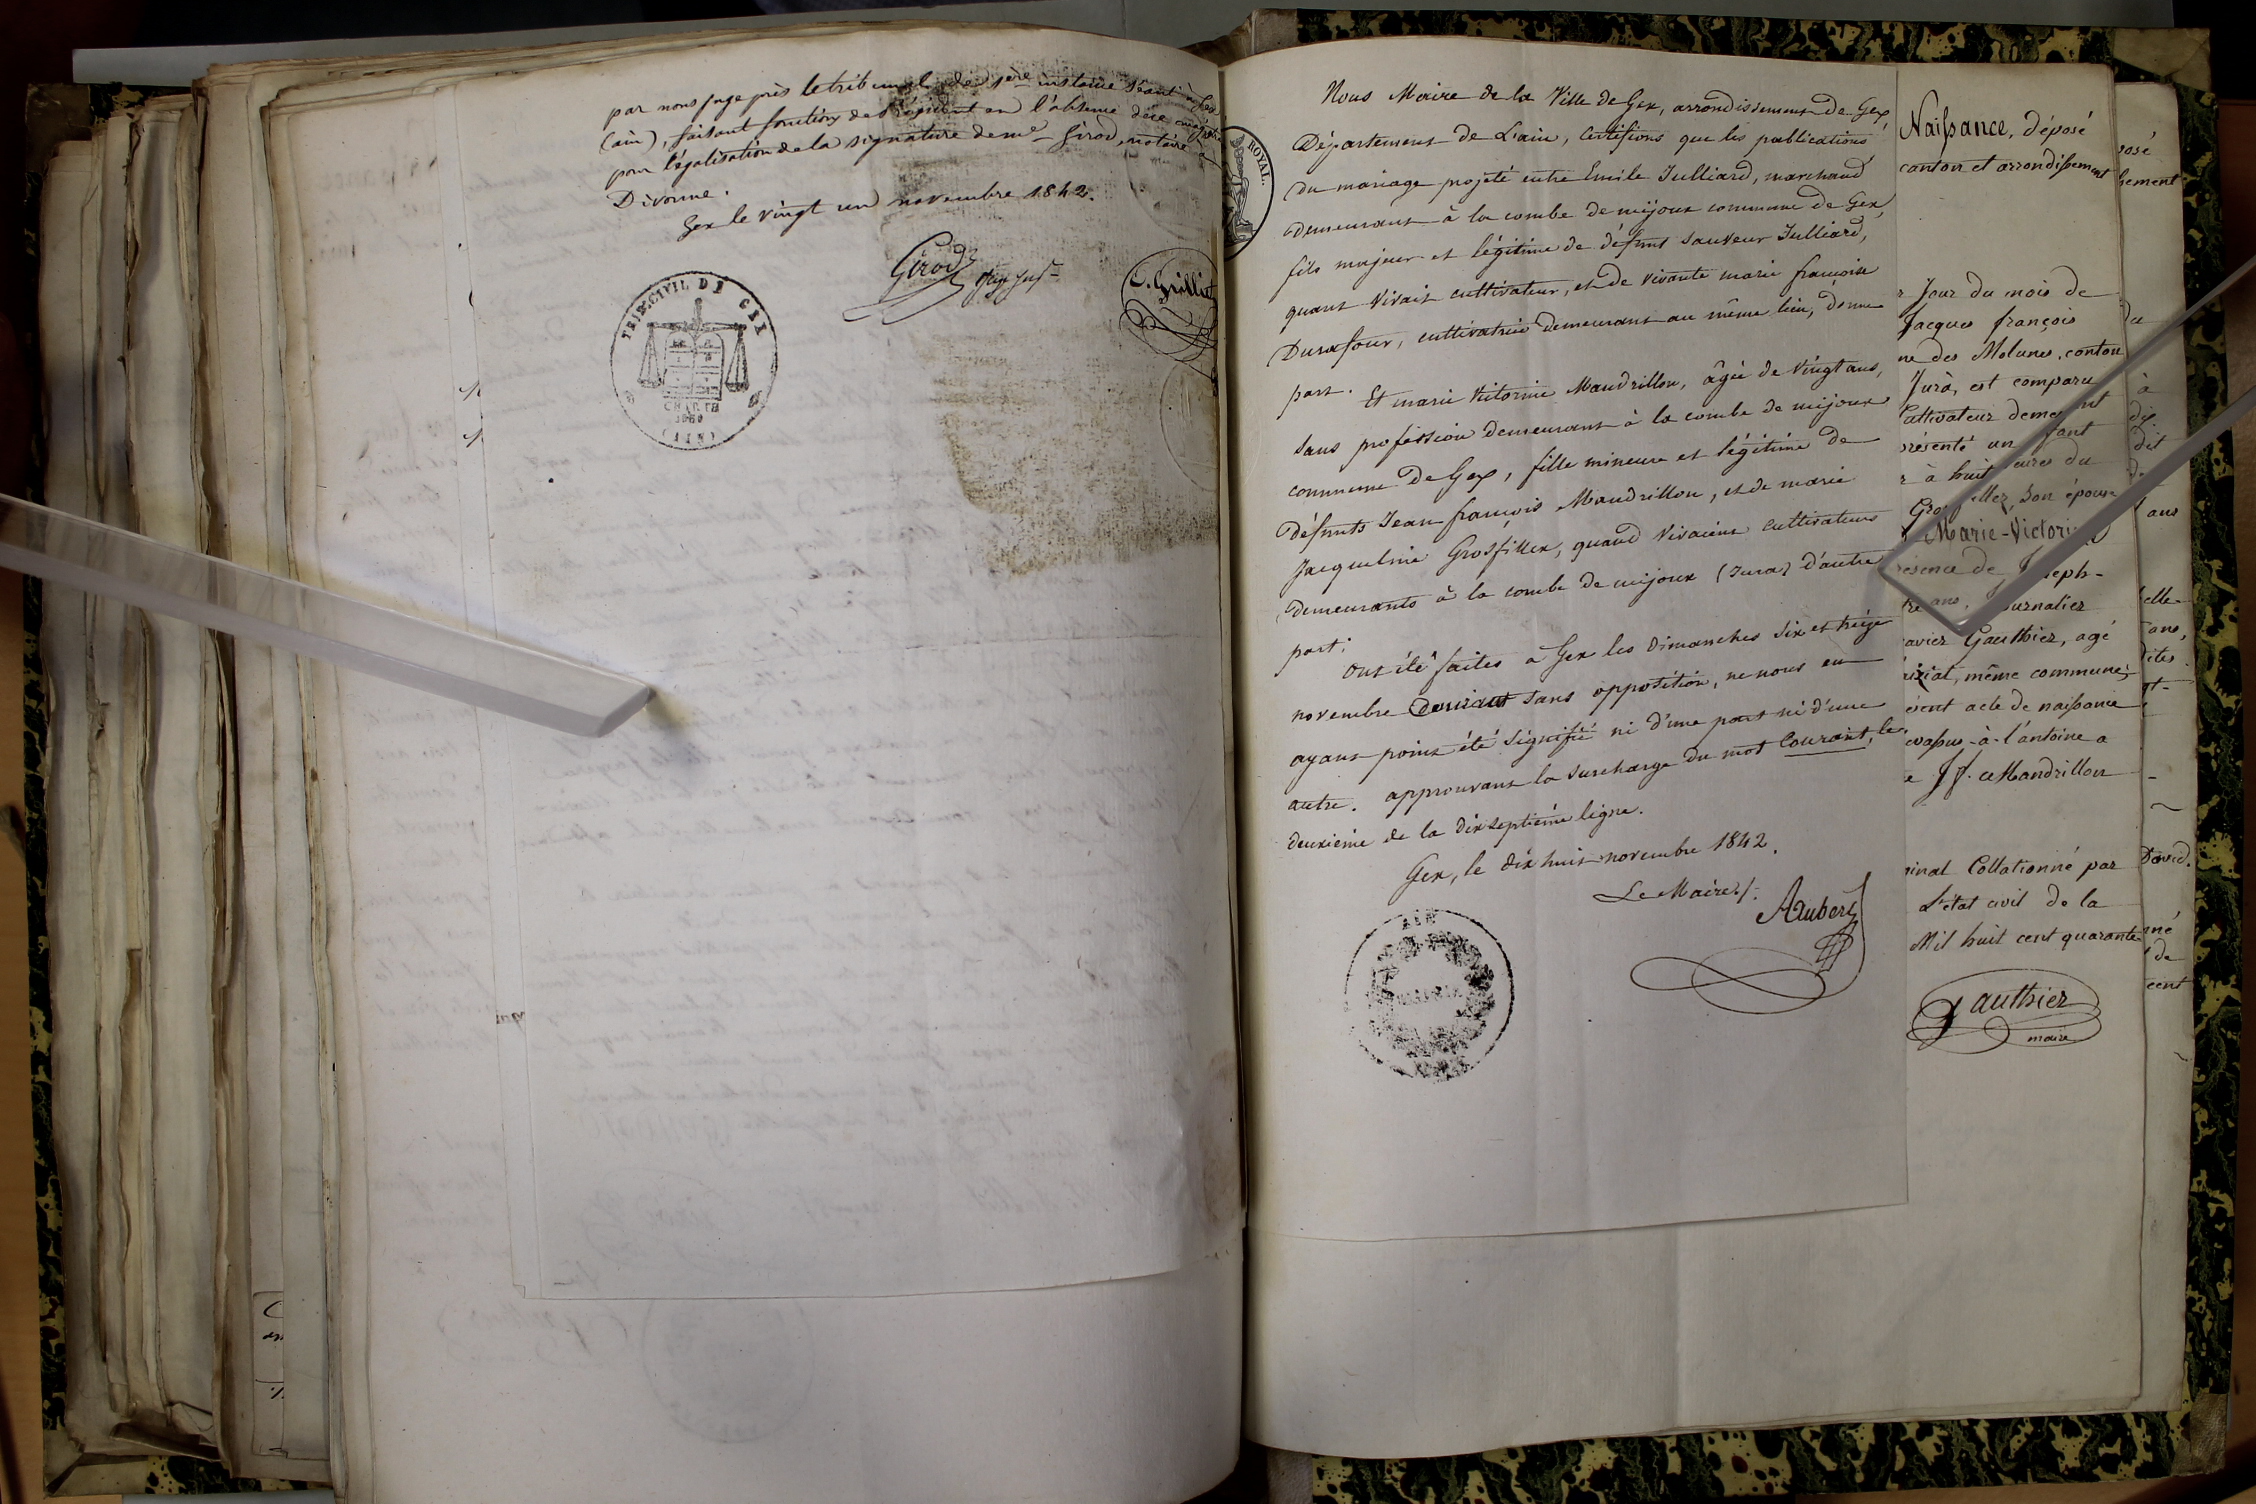 par nous juge près le tribunal de 1ère instance séant à Gex
(ain), faisant fonctions de Président en l'absence de ce
pour légalisation de la signature de me Girod, notaire à
Divonne.
Gex le vingt un novembre 1842.
Girod
Juge supt
C. Grillet
TRIB. CIVIL DE GEX
CHARTE
1830
(AIN)
ROYAL.
Nous Maire de la Ville de Gex, arrondissement de Gex
Département de L'ain, Certifions que les publications
du mariage projeté entre Emile Julliard, marchand
demeurant à la combe de mijoux commune de Gex,
fils majeur et légitime de défunt Sauveur Julliard,
quant vivait cultivateur, et de vivante marie françoise
Durafour, cultivatrice demeurant au même lieu, d'une
part.
Et marie Victorine Mandrillon, âgée de vingt ans,
sans profession demeurant à la combe de mijoux
commune de Gex, fille mineure et légitime de
défunts Jean françois Mandrillon, et de marie
Jacqueline Grosfillex, quand vivaient cultivateurs
demeurants à la combe de mijoux (Jura) d'autre
part;
Ont été faites à Gex les dimanches six et treize
novembre Courant sans opposition, ne nous en
ayant point été signifié ni d'une part ni d'une
autre. approuvant la surcharge du mot Courant, le
deuxième de la dixseptième ligne.
Gex, le dix huit novembre 1842.
Le Maire
Aubert
AIN
MAIRIE
Naissance, déposé
canton et arrondissement
Jour du mois de
Jacques françois
ne des Molunes, canton
Jura, est comparu
Cultivateur
présenté un
à huit heures du
son épouse
Marie-Victori
ésence de Joseph-
tre ans, Journalier
avier Gauthier, agé
même commune;
ésent acte de naissance
à-l'antoine a
J. f. Mandrillon
ginal Collationné par
L'état civil de la
Mil huit cent quarante
Gauthier
maire
osé
sement
du
à
dix
dit
de
ans
elle
ans,
dites
gt-
David.
nné
de
cent